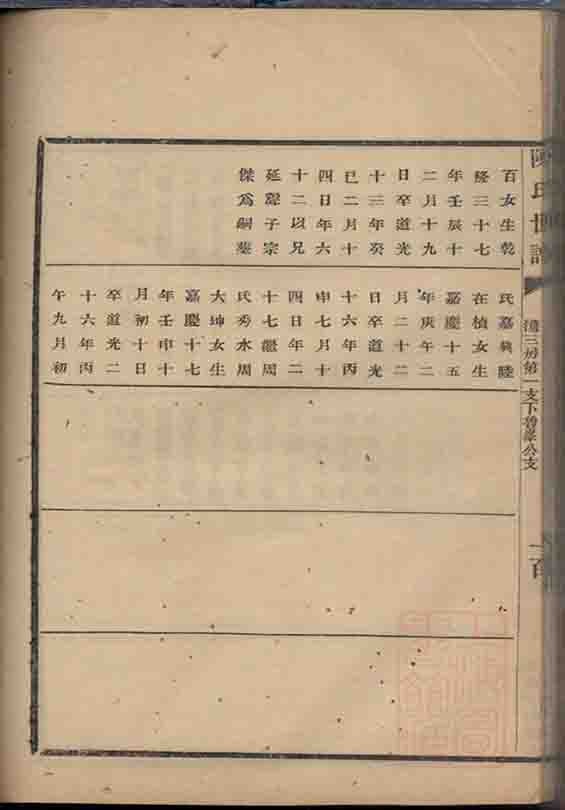 陳氏世譜
三房第一支下
公支
一百
百女生乾
隆三十七
年壬辰十
二月十九
日卒道光
十三年癸
巳二月十
四日年六
十二以兄
延霖子宗
傑為嗣葬
氏嘉興陸
在楨女生
嘉慶十五
年庚午二
月二十二
日卒道光
十六年丙
申七月十
四日年二
十七繼周
氏秀水周
大坤女生
嘉慶十七
年壬申十
月初十日
卒道光二
十六年丙
午九月初